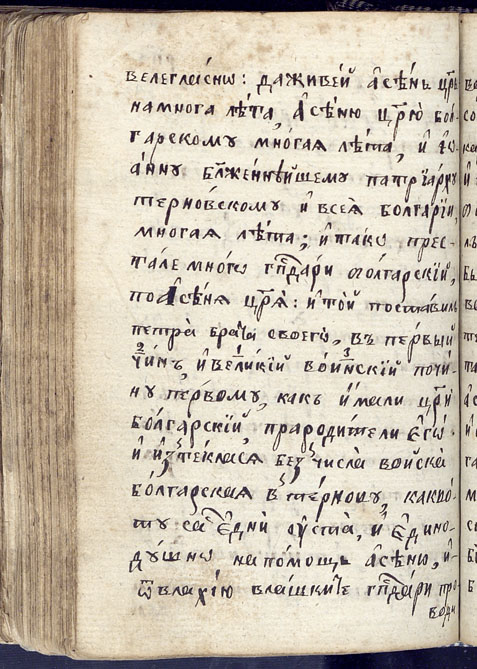 велегласнѡ: даживей Асѣнь цр҃ь
намнога лѣта, Асѣню цр҃ю бол-
гарскому многая лѣта, и їѡ-
анну бл҃женнѣйшему патрїарху
терновскому и всея болгарїи,
многая лѣта; и такѡ прес-
тале многѡ гп҇дари болгарскїй,
по Асѣня цр҃я: и той поставилъ
петра брата своегѡ, въ первый
чинъ, и великїй воинскїй почи-
ну первому, какъ имали цр҃їи
болгарскїй, прародители єгѡ.
и изтеклася без числа войска
болгарская в терновꙋ, какѡ-
ту са єдни ꙋста, и єдино-
дꙋшнѡ на помощь Асѣню, и-
ѿ влахїю влашкїе гп҇дари про-
води